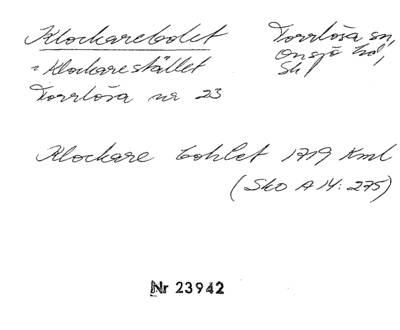 Klockarebolet
Torrlösa sn,
Onsjö hd,
Sk
= Klockarestället
Torrlösa nr 23
Klockare bohlet 1719 Kml
(Sko A 14: 275)
Nr 23942